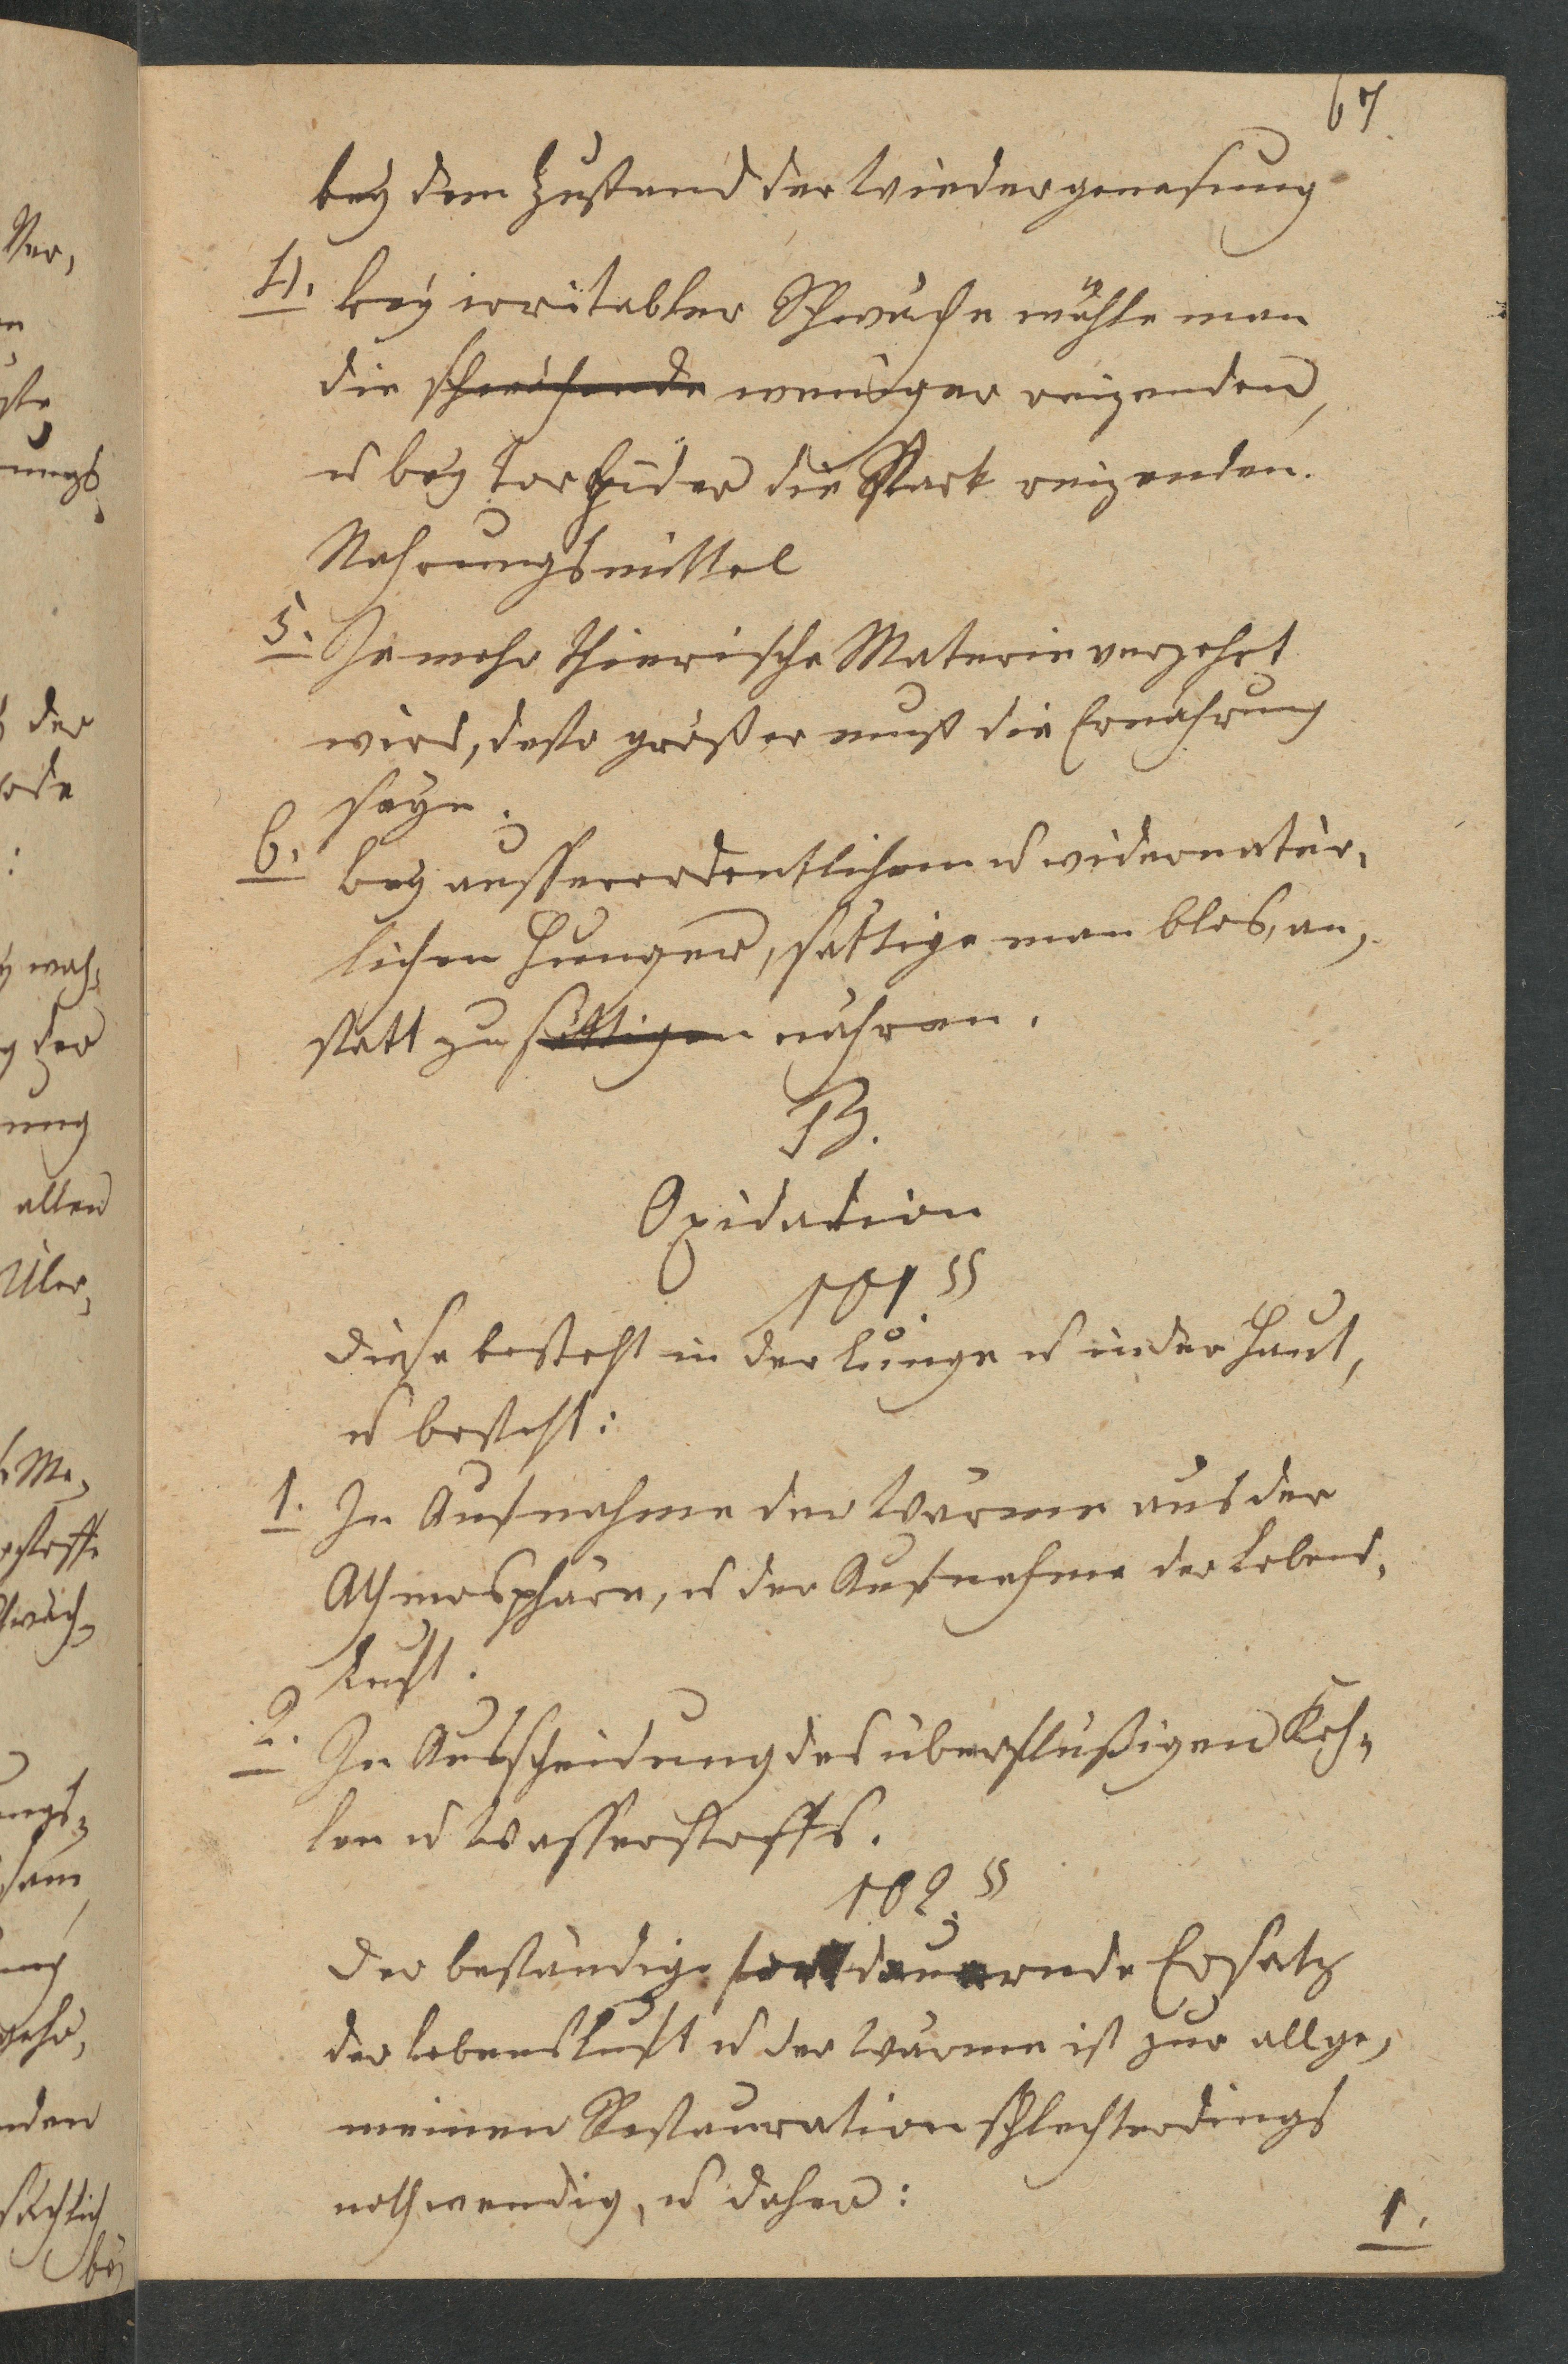 67.
bey dem Zustand der Wiedergenesung
4. bey irritabler Schwäche wähle man
die schwächende weniger reizenden,
u bey torpider die Stark reizenden.
Nahrungsmittel
5. Je mehr thierische Materie verzehrt
wird, desto größer muß die Ernährung
seyn.
6. bey ausserordentlichem u widernatür,
lichen Hunger, sättige man blos, an,
statt zu sättigen nähren.
B.
Oxidation
101. §§
diese besteht in der Lunge u in der Haut,
u besteht:
1. In Aufnahme der Wärme aus der
Athmosphäre, u der Aufnahme der Lebens,
Luft.
2. In Ausscheidung des überflüßigen Koh=
len u Wasserstoffs.
102. §§
der beständige fortdauernde Ersatz
der Lebensluft u der Wärme ist zur allge,
meinen Restauration schlechterdings
nothwendig, u daher:
1.
Ver,
ste
ungs
der
ode
:
wach=
der
ung
allen
Über,
Ma,
stoffe
wäch=
ungs=
sam,
ung
gehr,
nden
sächlich
bey